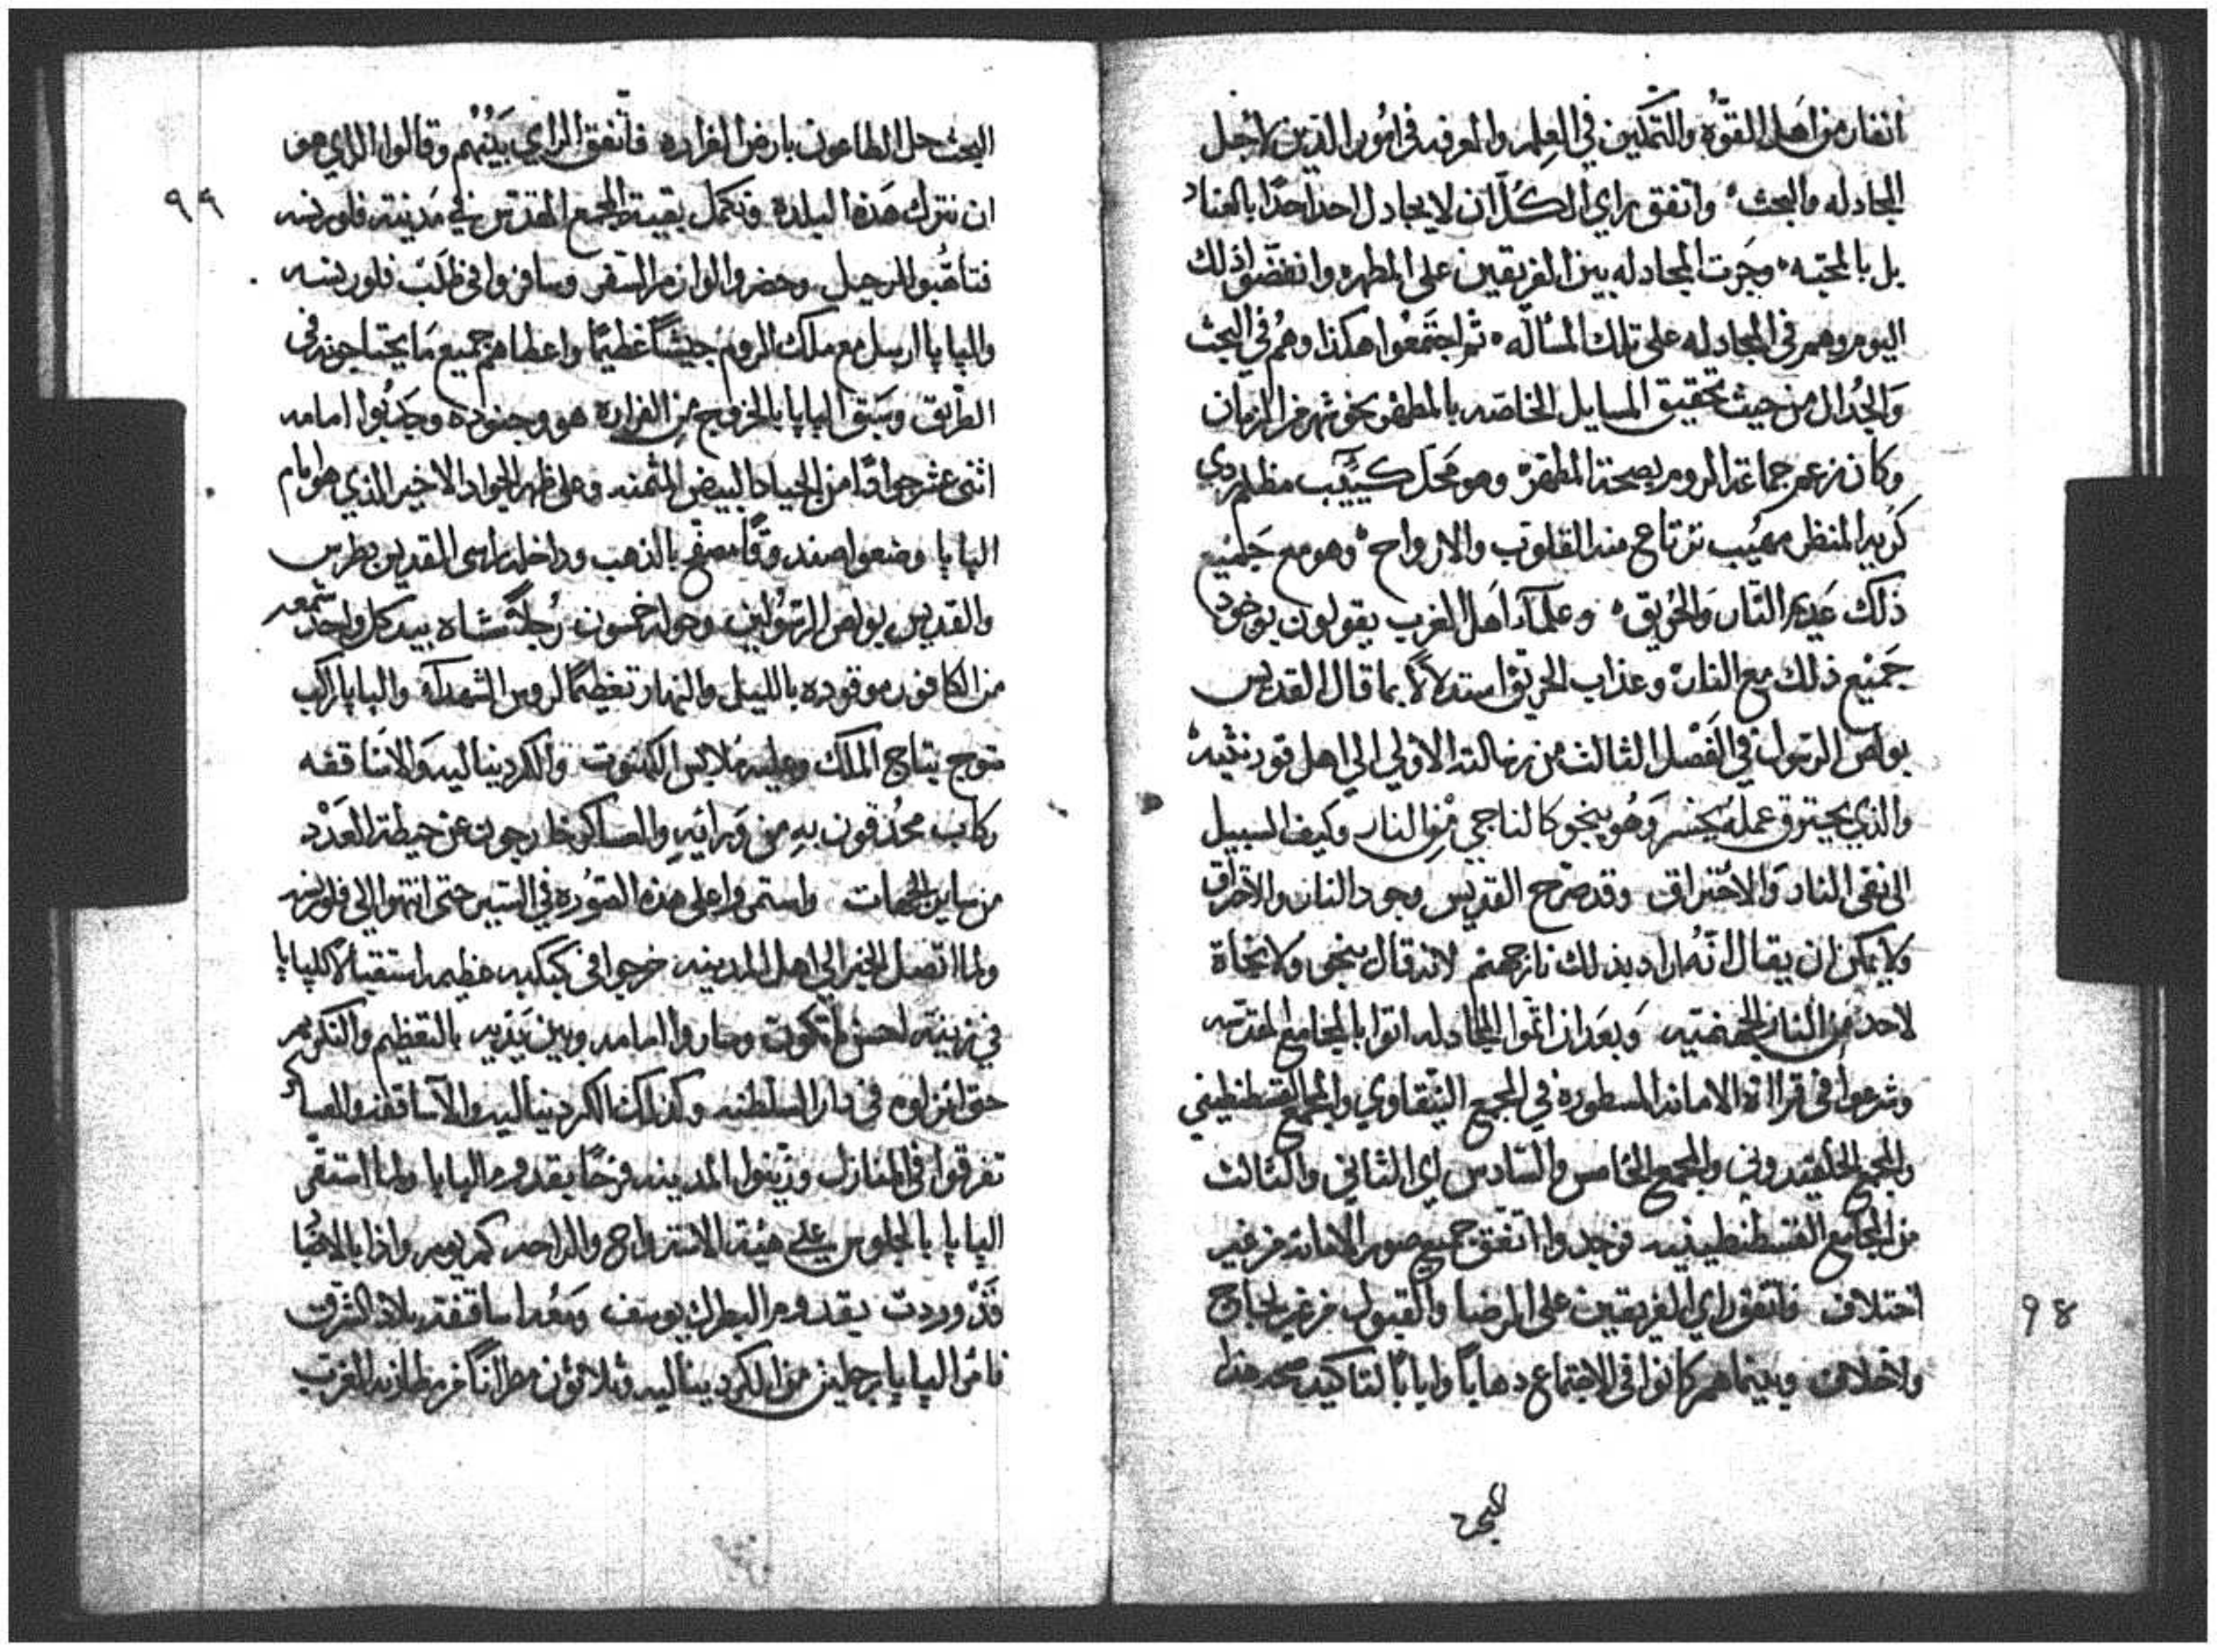 انفار من اهل القوّه والتمكين في العلم والمعرفه في امور الدين لاجل
المجادله والبحث واتفق راي الكلّ ان لا يجادل احد احدًا بالعناد
بل بالمحبّه وجرت المجادله بين الفريقين على المطهر وانفضّوا ذلك
اليوم وهم في المجادله على تلك المسأله ثم اجتمعوا هكذا وهم في البحث
والجدال من حيث تحقيق المسايل الخاصّه بالمطهر نحو شهر من الزمان
وكان زعم جماعة الروم بصحة المطهر وهو محل كئيب مظلم ردي
كريه المنظر مهيب ترتاع منه القلوب والارواح وهو مع جميع
ذلك عديم النار والحريق وعلماء اهل الغرب يقولون بوجود
جميع ذلك مع النار وعذاب الحريق استدلالًا بما قال القديس
بولص الرسول في الفصل الثالث من رسالته الاولي الي اهل قورنثيه
والذي يحترق عمله يخسر وهو ينجو كالناجي من النار وكيف السبيل
الى نفى النار والاحتراق وقد صرّح القديس وجود النار والاحتراق
ولا يمكن ان يقال انّه اراد بذلك نار جهنم لانه قال ينجو ولا نجاة
لاحد من النار الجهنميّه وبعد ان اتموا المجادله اتوا بالمجامع المقدسه
وشرعوا في قراءة الامانه المسطوره في المجمع النيقاوي والمجمع القسطنطيني
والمجمع الخلقيدوني والمجمع الخامس والسادس اي الثاني والثالث
من المجامع القسطنطينيه فوجدوا اتفق جميع صور الامانه من غير
اختلاف فاتفق راي الفريقين على الرضا والقبول من غير لجاج
ولاخلاف وبينما هم كانوا في الاجتماع دهابًا وايابًا لتاكيد صحه هذا
البحث
٩٨
٩٩
البحث حل الطاعون بارض الفراره فاتفق الراي بينهم وقالوا الراي هو
ان نترك هذه البلده ونكمل بقية المجمع المقدس في مدينة فلورنسه
فتاهّبوا للرحيل وحضروا لوازم السفر وسافروا في طلب فلورنسه
والبابا ارسل مع ملك الروم جيشًا عظيمًا واعطاهم جميع ما يحتاجونه في
الطريق وسبق البابا بالخروج من الفراره هو وجنوده وجذبوا امامه
اثنى عشر جوادًا من الجياد البيض المثمنه وعلى ظهر الجواد الاخير الذي هو امام
البابا وضعوا صندوقًا مصفح بالذهب وداخله راس القديس بطرس
والقديس بولص الرسولين وحوله خمسون رجلًا مشاه بيد كل واحد شمعه
من الكافور موقوده بالليل والنهار تعظيمًا لروس الشهداء والبابا راكب
متوج بتاج الملك وعليه ملابس الكهنوت والكرديناليه والاساقفه
ركاب محدقون به من ورائه والعساكر خارجون عن حيطة العدد
من ساير الجهات واستمروا على هذه الصوره في السير حتى انتهوا الي فلورنسه
ولما اتصل الخبر الى اهل المدينه خرجوا في كبكبه عظيمه استقبالًا للبابا
في زينة احسن ما تكون وصاروا امامه وبين يديه بالتعظيم والتكريم
حتى انزلوه في دار السلطنه وكذلك الكرديناليه والاساقفه والعساكر
تفرقوا في المنازل وزينوا المدينه فرحًا بقدوم البابا ولما استقر
البابا بالجلوس على هيئة الاستراح والراحه كم يوم واذا بالاخبار
قد وردت بقدوم البطرك يوسف ومعه اساقفة بلاد الشرق
فامر البابا برجلين من الكرديناليه وثلاثون مطرانًا من مطارنة الغرب